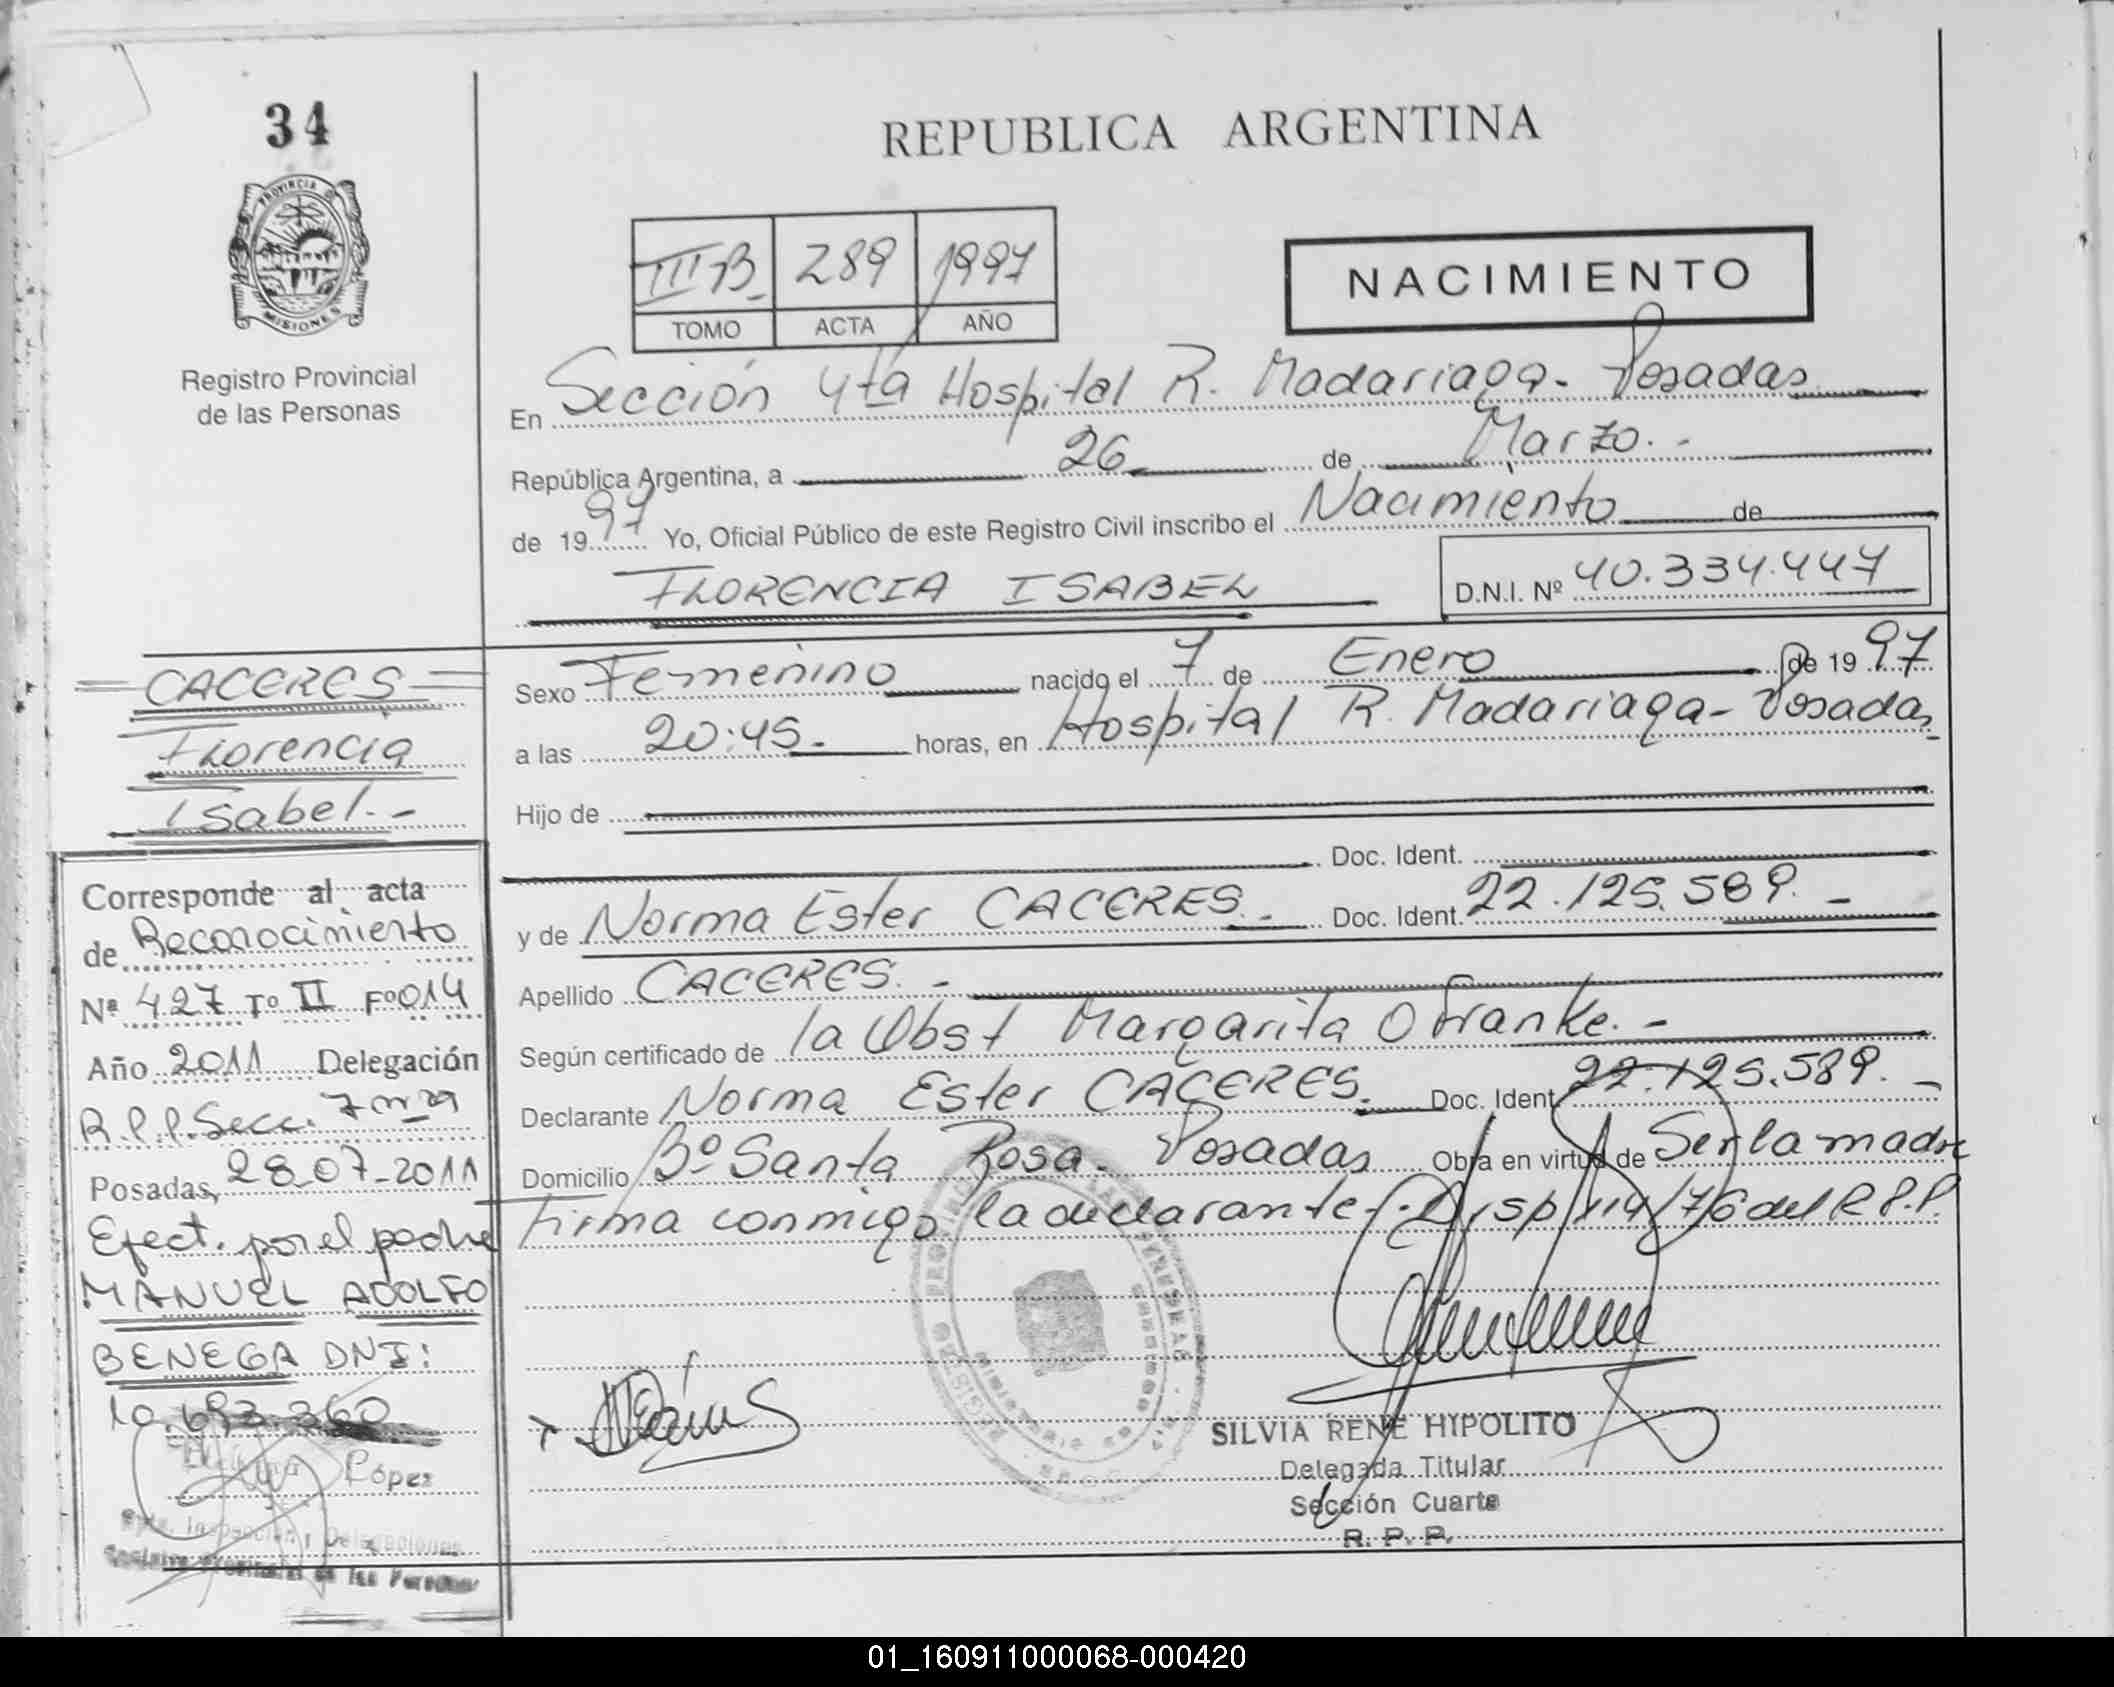 34
PROVINCIA D
MISIONES
Registro Provincial
de las Personas
REPUBLICA ARGENTINA
III B 289 1997
TOMO ACTA AÑO
NACIMIENTO
En Sección 4ta Hospital R. Madariaga - Posadas
República Argentina, a 26 de Marzo.-
de 1997 Yo, Oficial Público de este Registro Civil inscribo el Nacimiento de
FLORENCIA ISABEL
D.N.I. Nº 40.334.447
CACERES
Florencia
Isabel.-
Sexo Femenino nacido el 7 de Enero de 1997
a las 20:45.- horas, en Hospital R. Madariaga - Posadas
Hijo de
Doc. Ident.
y de Norma Ester CACERES.- Doc. Ident. 22.125.589.-
Apellido CACERES.-
Según certificado de la Obst Margarita O Franke.-
Declarante Norma Ester CACERES. Doc. Ident 22.125.589.-
Domicilio Bº Santa Rosa - Posadas Obra en virtud de Ser la madre
Firma conmigo la declarante.- Disp 114/76 del R.P.P.
Corresponde al acta
de Reconocimiento
Nº 427 Tº II Fº 014
Año 2011 Delegación
R.P.P. Secc. 7ma
Posadas, 28-07-2011
Efect. por el padre
MANUEL ADOLFO
BENEGA DNI:
10.693.360
López
Dpto. Inspección y Delegaciones
Registro Provincial de las Personas
SILVIA RENE HIPOLITO
Delegada Titular
Sección Cuarta
R. P. P.
01_160911000068-000420